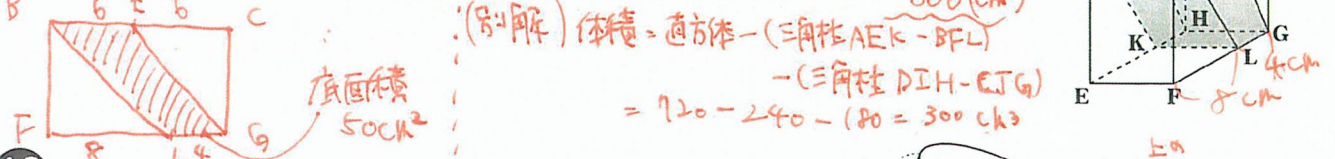 B 6 I 6 C
底面積
50cm²
F 8 L 4 G
(別解) 体積 = 直方体 - (三角柱 AEK - BFL)
- (三角柱 DIH - CJG)
= 720 - 240 - 180 = 300 cm³
H
G
K
L
4cm
E
F
8cm
上の